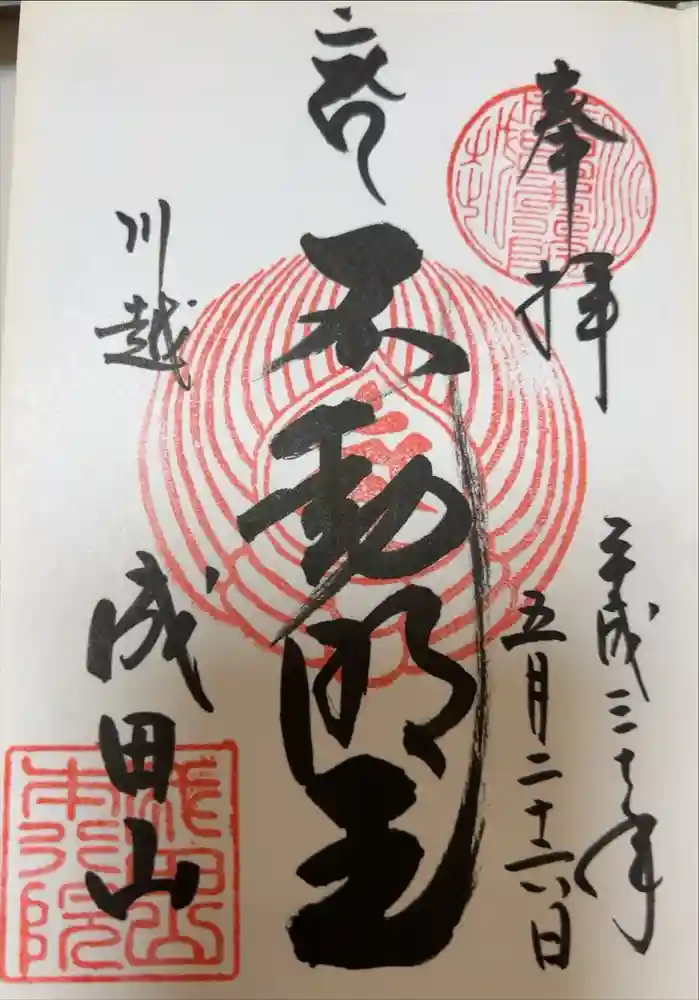 奉拝
平成三十年
五月二十六日
不動明王
川越
成田山
成田山
本行院